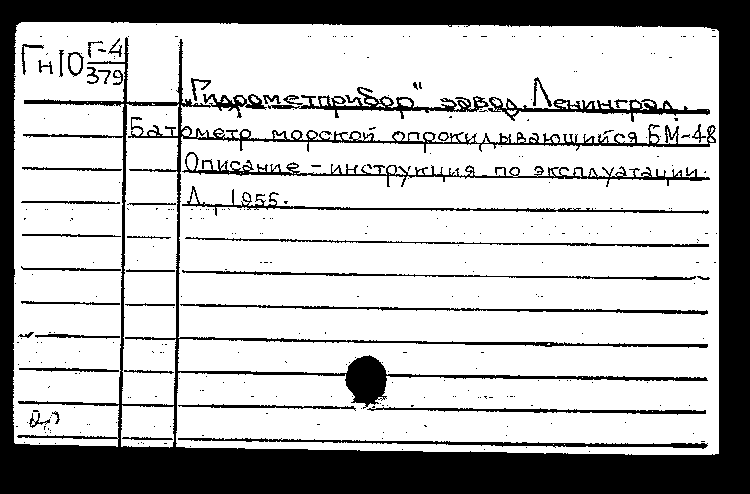 Гн10 Г-4/379
„Гидрометприбор" завод. Ленинград.
Батометр морской опрокидывающийся БМ-48
Описание-инструкция по эксплуатации.
Л., 1955.